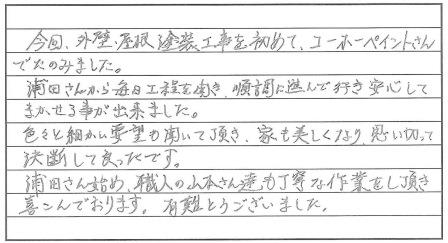 今回、外壁、屋根、塗装工事を初めて、ユーホーペイントさん
でたのみました。
浦田さんから毎日工程を聞き、順調に進んで行き安心して
まかせる事が出来ました。
色々と細かい要望も聞いて頂き、家も美しくなり、思い切って
決断して良ったです。
浦田さん始め、職人の山本さん達も丁寧な作業をし頂き
喜こんでおります。有難とうございました。